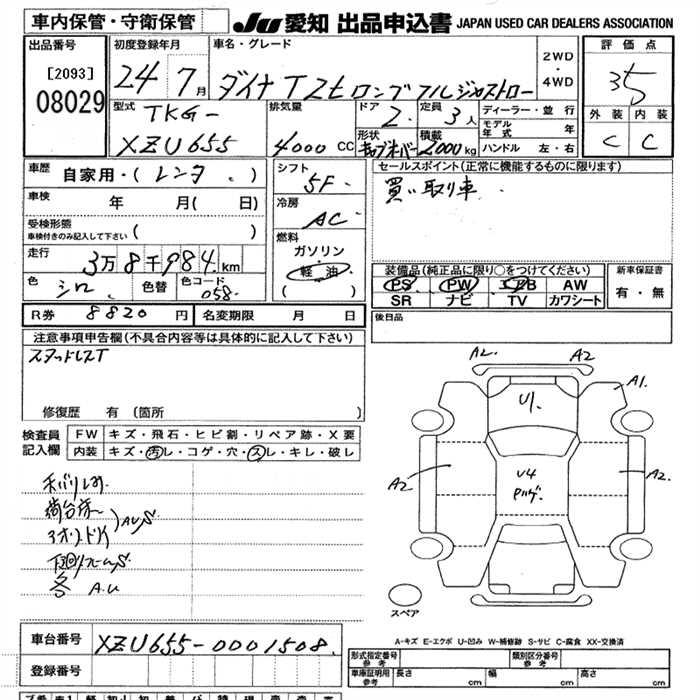 車内保管・守衛保管 JU 愛知 出品申込書 JAPAN USED CAR DEALERS ASSOCIATION
出品番号 初度登録年月 車名・グレード 2WD・4WD 評価点
[2093] 24 7月 ダイナ TSヒロングフルジャストロー 35
08029 型式 TKG- 排気量 ドア 2. 定員 3人 ディーラー・並行 外装 内装
XZU655 4000 CC 形状 積載 2000kg モデル年式 年 C C
ハンドル 左・右
車歴 自家用・(レンタ ) シフト 5F セールスポイント(正常に機能するものに限ります)
車検 年 月( 日) 冷房 AC 買い取り車
受検形態 車検付きのみ記入して下さい ( )
走行 3万8千984 km 燃料 ガソリン 軽油 ( )
装備品(純正品に限り○をつけてください) 新車保証書
色 シロ 色替 色コード 058 PS PW エアB AW 有・無
SR ナビ TV カワシート
R券 8820円 名変期限 月 日 後日品
注意事項申告欄(不具合内容等は具体的に記入して下さい)
スタッドレスT
修復歴 有 (箇所 )
検査員記入欄 FW キズ・飛石・ヒビ割・リペア跡・X要
内装 キズ・汚レ・コゲ・穴・スレ・キレ・破レ
荷台床
下廻りフレームS
各 A.U
A2. A2
A1.
U1.
A2 U4 A2.
スペア
A-キズ E-エクボ U-凹み W-補修跡 S-サビ C-腐食 XX-交換済
車台番号 XZU655-0001508
登録番号
形式指定番号 参考 類別区分番号 参考
車庫証明用 参考 長さ cm 幅 cm 高さ cm